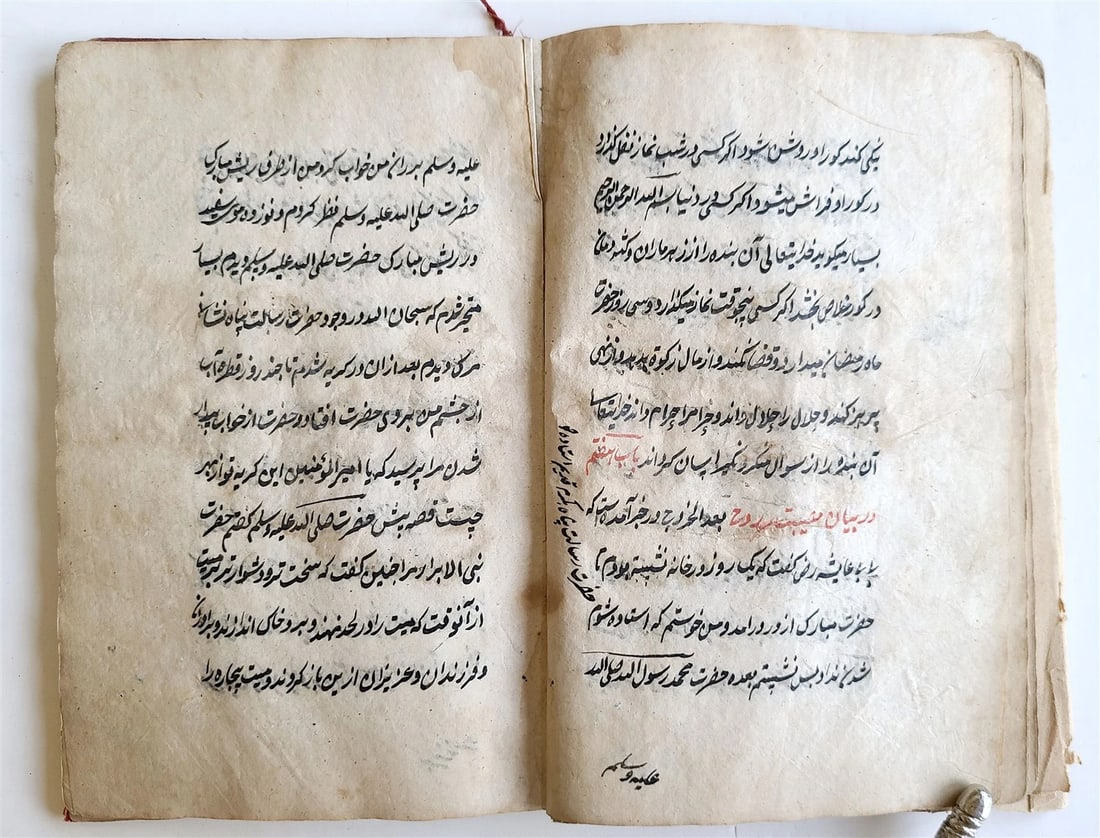 نیکی کند کور او روشن شود اکر کسی در شب نماز نفل کذارد
در کور او فراش میشود اکر کسی در دنیا بسم الله الرحمن الرحیم
بسیار میکوید خدایتعالی آن بنده را از زهر ماران و کژدمان
در کور خلاص بخشد اکر کسی پنجوقت نماز میکذارد و سی روز
ماه رمضان میدارد و قضا نکند و از مال زکوة بدهد و از نهی
پرهیز کند و حلال را حلال داند و حرام را حرام داند خدایتعالی
آن بنده را از سوال منکر و نکیر آسان کرداند باب هفتم
در بیان مصیبت روح بعد الخروج در خبر آمده است که
بی بی عایشه رض کفت که یک روز در خانه نشسته بودم تا
حضرت مبارک از در درآمد و من خواستم که استاده شوم
شدن نداد پس نشستم بعده حضرت محمد رسول الله صلی الله
حضرت رسالت پناه کرم قدیم استاده
علیه وسلم
علیه وسلم بر رانی من خواب کرد من از طرفی ریش مبارک
حضرت صلی الله علیه وسلم نظر کردم و نوزده موی سفید
در ریش مبارک حضرت صلی الله علیه وسلم دیدم بسیار
متحیر شدم که سبحان الله در وجود حضرت رسالت پناه نشانی
مرک دیدم بعد ازان در کریه شدم تا چند روز قطره آب
از چشم من بروی حضرت افتاد و حضرت از خواب بیدار
شدن مرا پرسید که یا امیر المؤمنین این کریه تو از بهر
چیست قصه پیش حضرت صلی الله علیه وسلم کفتم حضرت
نبی الابرار مرا چنین کفت که سخت تر و دشوارتر بر میت
از آنوقت که میت را در لحد نهند و برو خاک اندازند و برادران
و فرزندان و عزیزان ازین باز کردند و میت بیچاره را